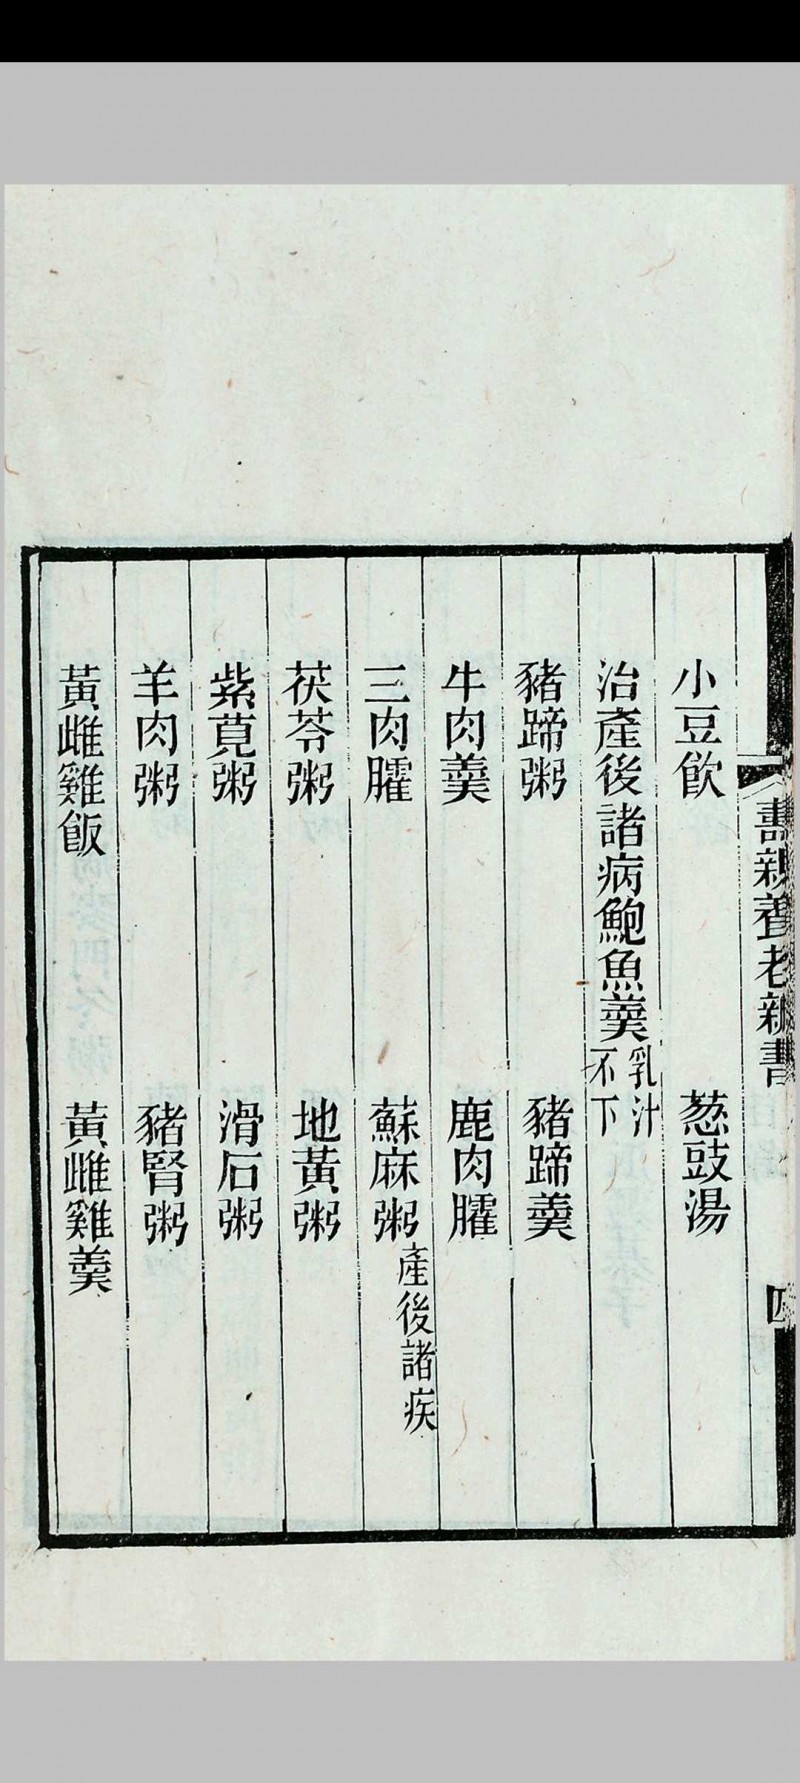 壽親養老新書
四
小豆飲　葱豉湯
治產後諸病鮑魚羹 乳汁不下
豬蹄粥　豬蹄羹
牛肉羹　鹿肉臛
三肉臛　蘇麻粥 產後諸疾
茯苓粥　地黃粥
紫莧粥　滑石粥
羊肉粥　豬腎粥
黃雌雞飯　黃雌雞羹